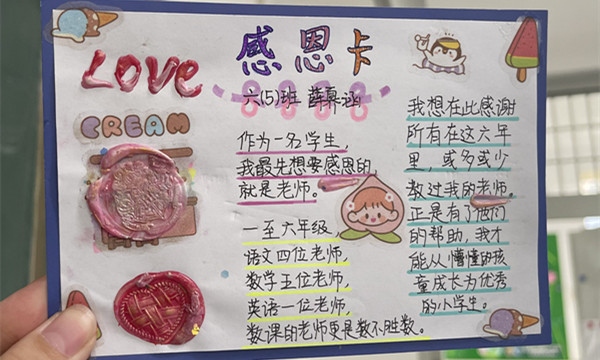 LOVE
CREAM
感恩卡
六(5)班 薛慕涵
作为一名学生，
我最先想要感恩的
就是老师。
一至六年级，
语文四位老师，
数学五位老师，
英语一位老师，
数课的老师更是数不胜数。
我想在此感谢
所有在这六年
里，或多或少
教过我的老师。
正是有了他们
的帮助，我才
能从懵懂的孩
童成长为优秀
的小学生。